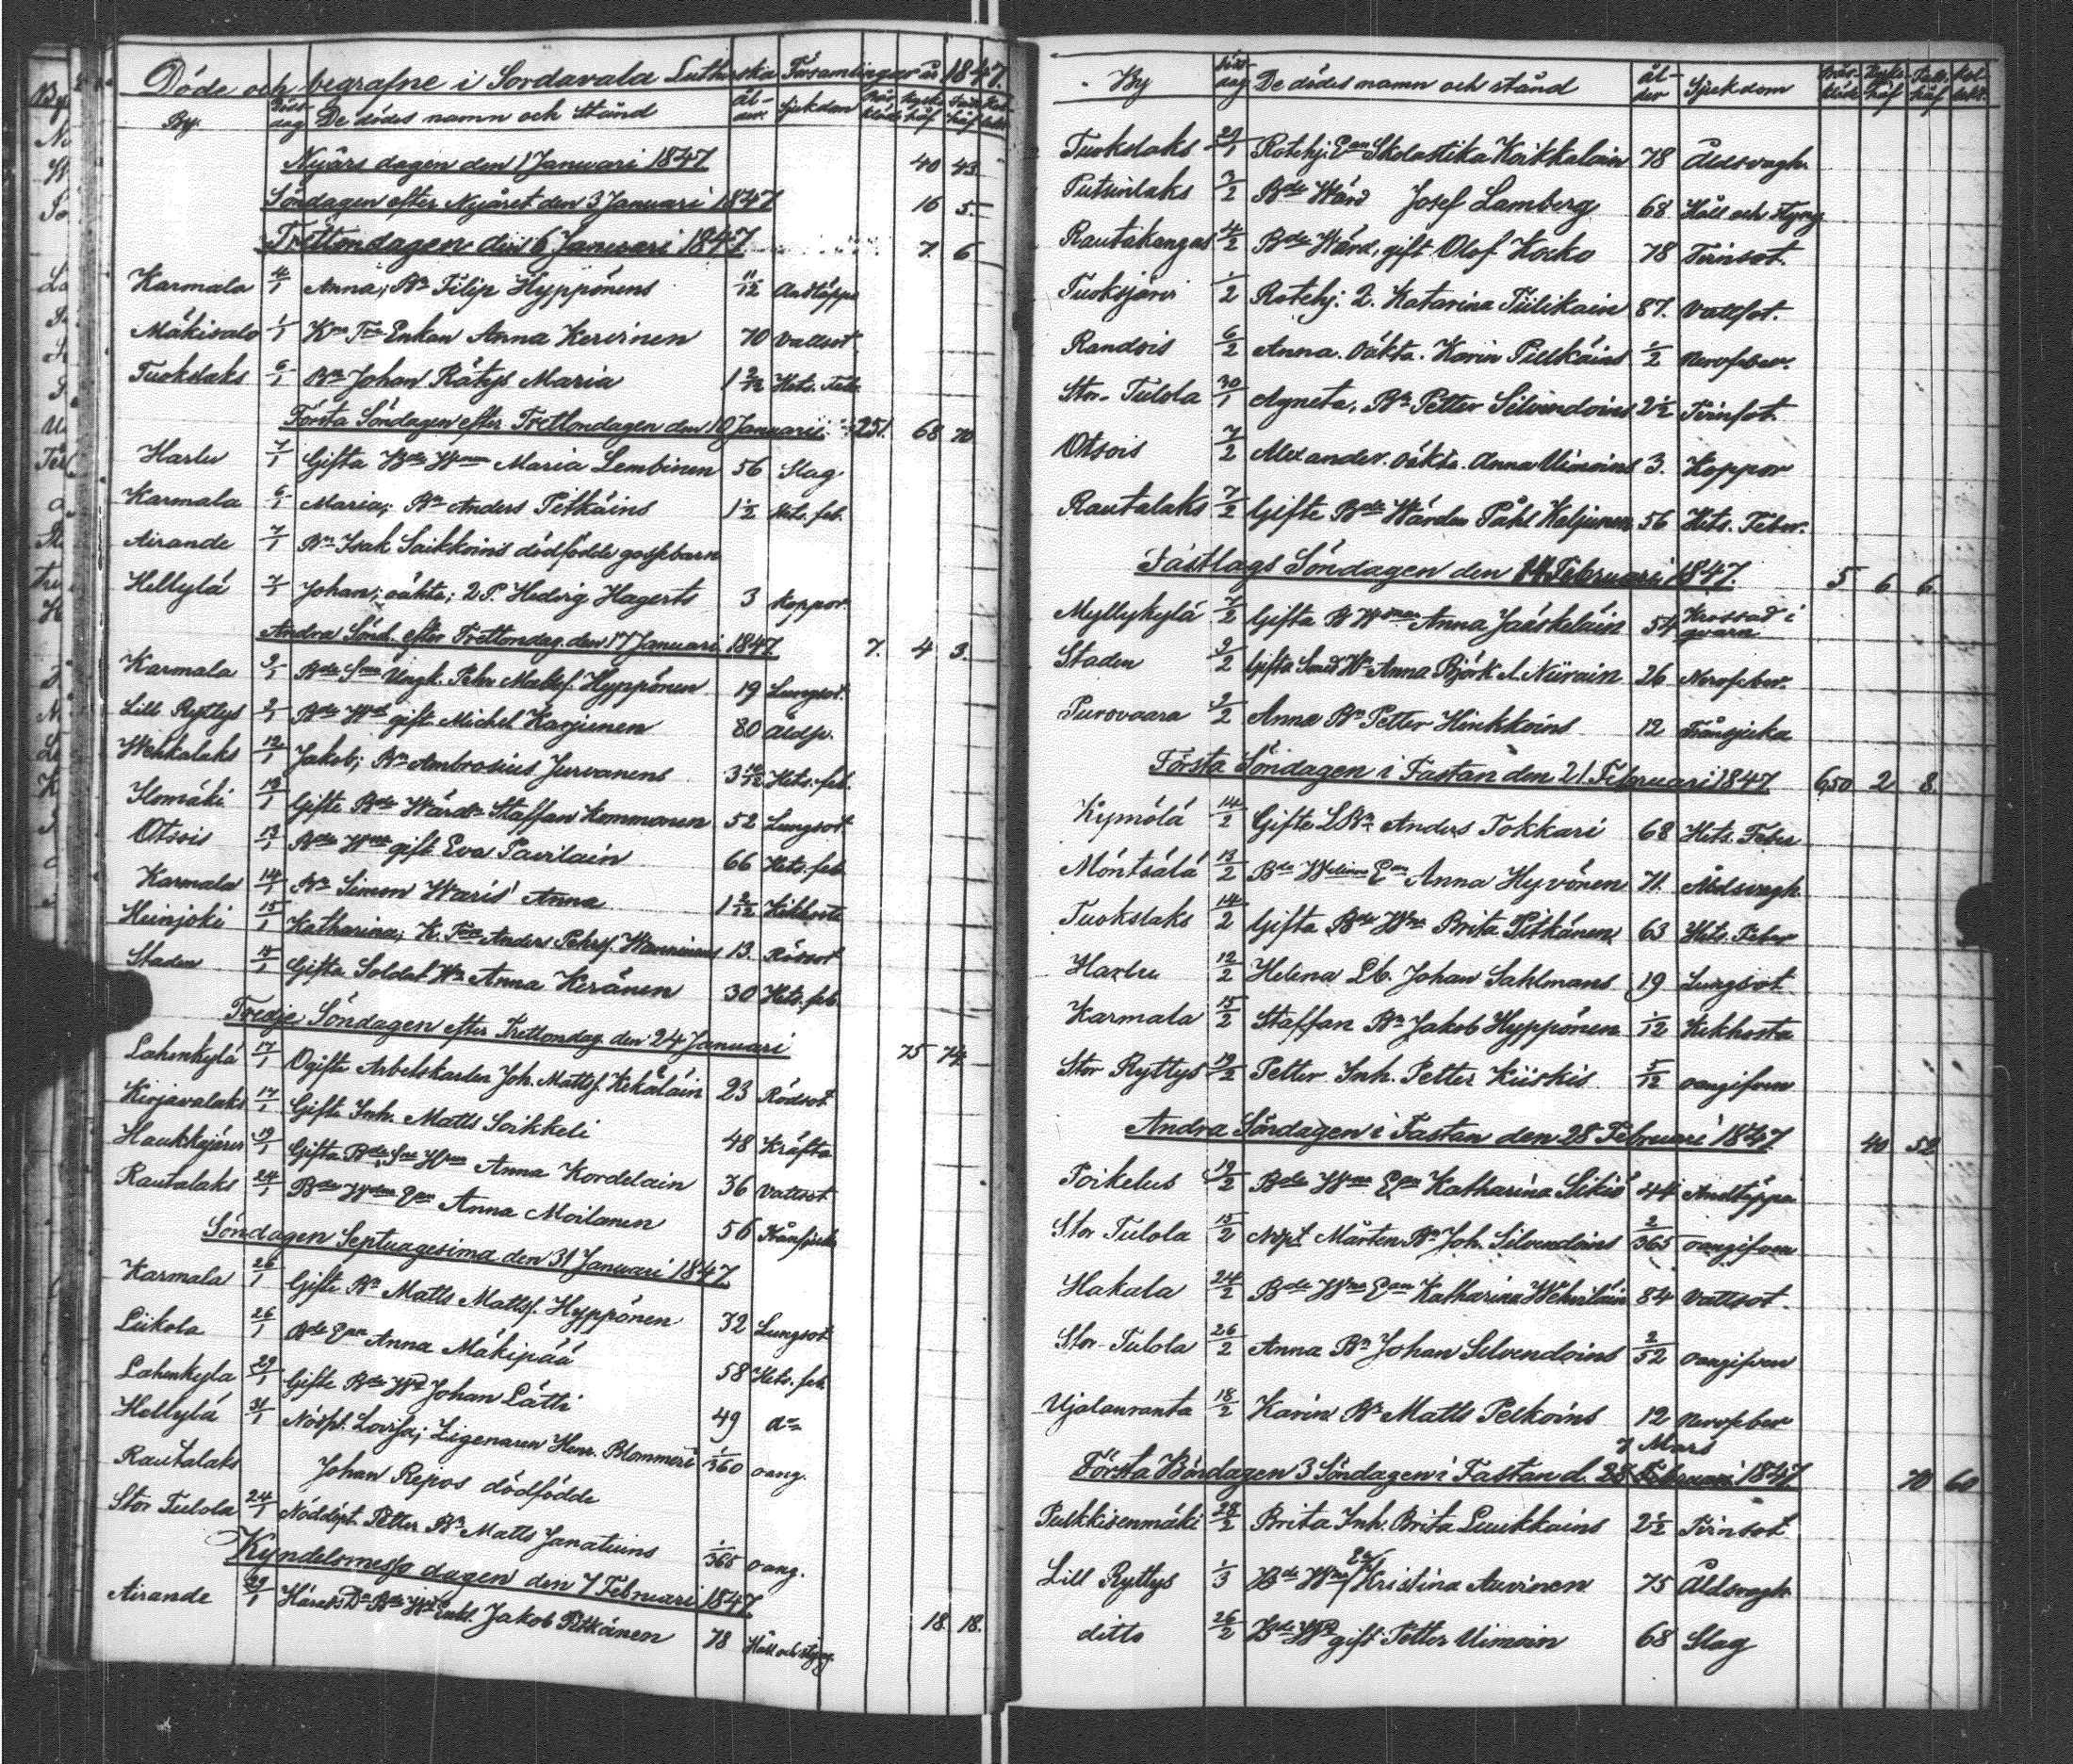 Döde och begrafne i Sordavala Lutherska Församlingar år 1847.
By. Döds-dag De dödes namn och Stånd ål-der Sjukdom
Nyårs dagen den 1 Januari 1847 40 43
Söndagen efter Nyåret den 3 Januari 1847 16 5.
Trettondagen den 6 Januari 1847 7. 6
Karmala 4/1 Anna; Bn Filip Hyppönens 11/12 Andtäppa
Mäkisalo 1/1 Enkan Anna Kervinen 70 Vattsot.
Tuokslaks 6/1 Bn Johan Rätys Maria 1 2/12 Hets. Feb.
Första Söndagen efter Trettondagen den 10 Januari 25. 68 70
Harlu 7/1 Gifta Bde Maria Lembinen 56 Slag
Karmala 6/1 Maria; Bn Anders Pitkäins 1 1/2 Hets. feb.
Airande 7/1 Bn Isak Saikkoins dödfödde gossebarn
Hellylä 7/1 Johan; oäkta; 2 P. Hedvig Hagerts 3 Koppor.
Andra Sönd. efter Trettondag. den 17 Januari 1847 7. 4 3.
Karmala 9/1 Bde Son Ungk. Pehr Mattsf. Hyppönen 19 Lungsot.
Lill Ryttys 9/1 Bde Wd gift Michel Karjunen 80 Åldr.
Wehkalaks 12/1 Jakob; Bn Ambrosius Jurvanens 3 10/12 Hets. feb.
Ilomäki 13/1 Gifte Bde Wärdn Staffan Kommonen 52 Lungsot
Otsois 13/1 Bde Wna gift Eva Pavilain 66 Hets. feb.
Karmala 14/1 Bn Simon Waris' Anna 1 2/12 Kikhosta
Heinjoki 15/1 Katharina; Anders Pehrsf. Wanninens 13. Rödsot
Staden 15/1 Gifta Soldat Wn Anna Keränen 30 Hets. feb.
Tredje Söndagen efter Trettondag. den 24 Januari 75 74
Lahenkylä 17/1 Ogifte Arbetskarlen Joh. Mattsf. Kekäläin 23 Rödsot
Kirjavalaks 17/1 Gifte Inh. Matts Soikkeli 48 Kräfta
Haukkajärvi 19/1 Gifta Bde Anna Kordelain 36 Vattsot
Rautalaks 24/1 Bde Enn Anna Moilanen 56 Frånsjuka
Söndagen Septuagesima den 31 Januari 1847
Karmala 26/1 Gifte Bn Matts Mattsf. Hyppönen 32 Lungsot
Liikola 26/1 Bde Enn Anna Mäkipää 58 Hets. feb.
Lahenkyla 29/1 Gifte Bde Wd Johan Lätti 49 do
Hellylä 31/1 Nödpt. Lovisa; Zigenaren Henr. Blommeri 1/360 oang.
Rautalaks Johan Repos dödfödde
Stor Tulola 24/1 Nöddöpt. Petter Bn Matts Janatuins 1/365 oang.
Kyndelsmesso dagen den 7 Februari 1847 18. 18.
Airande 29/1 Jakob Pitkänen 78 Håll och styng.
By Döds-dag De dödes namn och stånd ål-der Sjukdom
Tuokslaks 29/1 Rotehj. Enn Skolastika Koikkalain 78 Åldsvagh.
Putsinlaks 3/2 Bde Wärd Josef Lamberg 68 Håll och styng
Rautakangas 4/2 Bde Wärd, gift Olof Kocko 78 Tvinsot.
Tuoksjärvi 1/2 Rotehj: 2. Katarina Tiilikain 87. Vattsot.
Randois 6/2 Anna. oäkta. Karin Pullkäins 1/2 Nervfeber.
Stor-Tulola 30/1 Agneta, Bn Petter Silvendoins 2 1/2 Tvinsot.
Otsois 7/2 Alexander. oäkta. Anna Uimoins 3. Koppor
Rautalaks 7/2 Gifte Bde Wärden Påhl Kaljunen 56 Hets. Feber.
Fastlags Söndagen den 14 Februari 1847. 5 6 6.
Myllykylä 7/2 Gifta B Anna Jääskeläin 54 Krossad i qvarn
Staden 9/2 Gifta Smed Wn Anna Björk l. Niirain 26 Nervfeber.
Purovaara 9/2 Anna Bn Petter Hinkkoins 12 Frånsjuka
Första Söndagen i Fastan den 21. Februari 1847 6,50 2 8.
Kymölä 14/2 Gifte LBn Anders Tokkari 68 Hets. Feber
Möntsälä 13/2 Bde Enn Anna Hyvönen 71. Åldsvagh.
Tuokslaks 14/2 Gifta Bde Wna Brita Pitkänen 63 Hets. Feber
Harlu 12/2 Helena Lb. Johan Sahlmans 19 Lungsot
Karmala 15/2 Staffan Bn Jakob Hyppönen 1/12 Kikhosta
Stor Ryttys 19/2 Petter Inh. Petter Kiiskis 5/12 oangifven
Andra Söndagen i Fastan den 28 Februari 1847 40 52
Poikelus 19/2 Bde Wna Enn Katharina Sikiö 44 Andtäppa
Stor Tulola 15/2 Nöpt Mårten Bn Joh. Silvendoins 2/365 oangifven
Hakala 24/2 Bde Wna Enn Katharina Wehviläin 84 Vattsot.
Stor-Tulola 26/2 Anna Bn Johan Silvendoins 2/52 oangifven
Ujalanranta 18/2 Karin Bn Matts Pelkoins 12 Nervfeber
7 Mars
Första Böndagen 3 Söndagen i Fastan d. 28 Februari 1847. 70 60
Pulkkisenmäki 28/2 Brita Inh. Brita Luukkains 2 1/2 Tvinsot
Lill Ryttys 1/3 Bde Wna Enn Kristina Auvinen 75 Åldsvagh.
ditto 26/2 Bde Wd gift Petter Uimoin 68 Slag